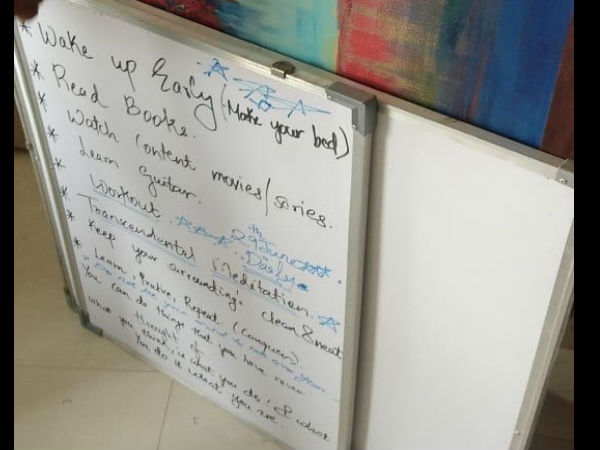 * Wake up Early (Make your bed)
* Read Books.
* Watch Content movies/series.
* Learn Guitar.
* Workout. 29th June
* Transcendental Meditation. Daily
* Keep your surroundings clean & neat
* Learn, Practice, Repeat. (Conquer).
You can do things that you have never
thought of.
what you think, is what you do, & what
You do is what you are.